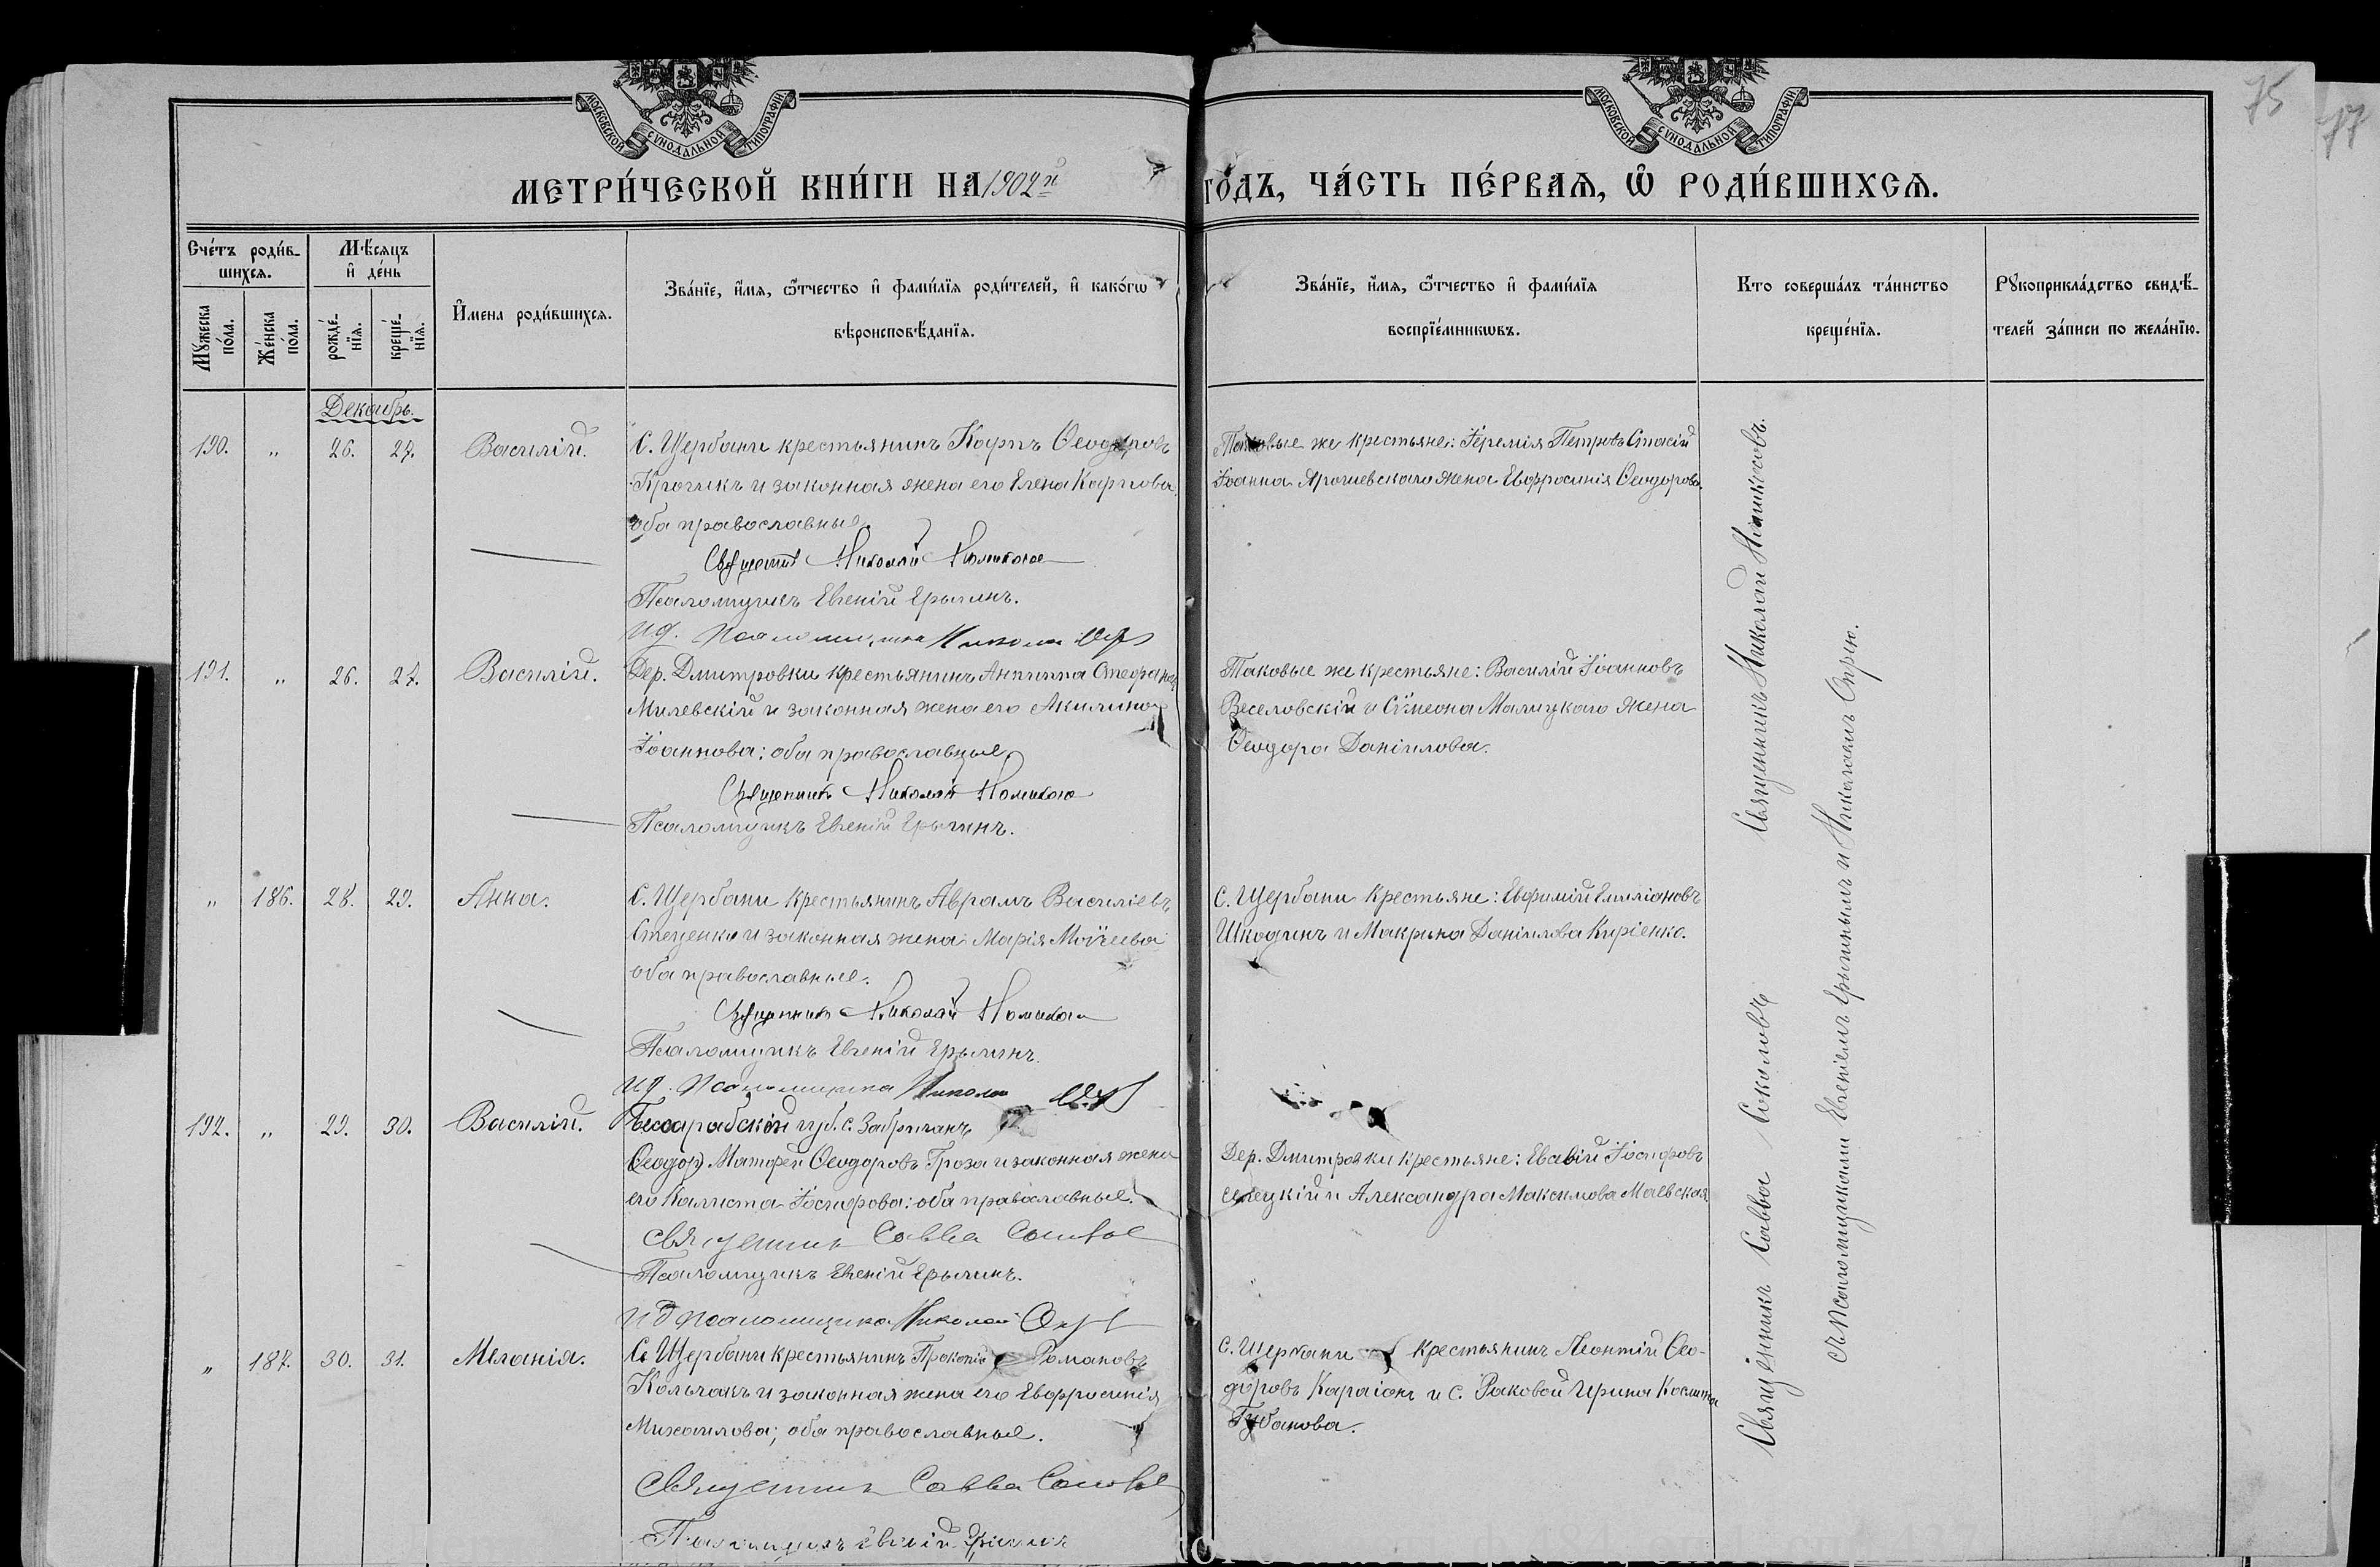 75
77
МОСКОВСКОЙ СѴНОДАЛЬНОЙ ТИПОГРАФІИ
МОСКОВСКОЙ СѴНОДАЛЬНОЙ ТИПОГРАФІИ
МЕТРИ́ЧЕСКОЙ КНИ́ГИ НА 1902й
ГОДЪ, ЧА́СТЬ ПЕ́РВАѦ, Ѡ҆ РОДИ́ВШИХСѦ.
Сче́тъ роди́в-
шихсѧ.
Мꙋ́жеска по́ла.
Же́нска по́ла.
Мѣ́сѧцъ
и҆ де́нь
рожде́-нїѧ.
креще́-нїѧ.
И҆мена роди́вшихсѧ.
Зва́нїе, и҆́мѧ, ѻ҆́тчество и҆ фами́лїѧ роди́телей, и҆ како́гѡ
вѣроисповѣ́данїѧ.
Зва́нїе, и҆́мѧ, ѻ҆́тчество и҆ фами́лїѧ
воспрїе́мникѡвъ.
Кто соверша́лъ та́инство
креще́нїѧ.
Рꙋкоприкла́дство свидѣ́-
телей за́писи по жела́нїю.
Декабрь.
190. " 26. 27. Василій.
С. Щербани крестьянинъ Карпъ Ѳеодоровъ
и законная жена его Елена Карпова,
оба православные.
Священникъ Николай
Псаломщикъ Евгеній Ерыгинъ.
И д. псаломщика Николай
Таковые же крестьяне: Іеремія Петровъ Стасій
Іоанна Ярошевскаго жена Евфросинія Ѳеодорова.
191. " 26. 27. Василій.
Дер. Дмитровки крестьянинъ Антипа Стефановъ
Милевскій и законная жена его Акилина
Іоаннова: оба православные.
Священникъ Николай
Псаломщикъ Евгеній Ерыгинъ.
Таковые же крестьяне: Василій Іоанновъ
Веселовскій и Сѵмеона Малицкаго жена
Ѳеодора Даніилова.
" 186. 28. 29. Анна.
С. Щербани крестьянинъ Аврамъ Василіевъ
Стеценко и законная жена Марія Моѵсеева
оба православные.
Священникъ Николай
Псаломщикъ Евгеній Ерыгинъ.
И д. псаломщика Николай
С. Щербани крестьяне: Евфимій Емиліановъ
Шкодинъ и Макрина Даніилова Киріенко.
192. " 29. 30. Василій.
Бессарабской губ. с. Забричанъ
Ѳеодор Матфей Ѳеодоровъ Гроза и законная жена
его Калиста Іосифова: оба православные.
Священникъ Савва Соколов
Псаломщикъ Евгеній Ерыгинъ.
И д псаломщика Николай
Дер. Дмитровки крестьяне: Іосифовъ
и Александра Максимова Маевская
" 187. 30. 31. Меланія.
С. Щербани крестьянинъ Прокопій Романовъ
Кольчакъ и законная жена его Евфросинія
Михаилова; оба православные.
Священникъ Савва Соколов
Псаломщикъ Евгеній Ерыгинъ
С. Щербани крестьянинъ Леонтій Ѳео-
доровъ Караіонъ и С. Раковой Ирина Косьмина
Губанова.
Священникъ Савва Соколовъ
Священникъ Николай
съ псаломщиками Евгеніемъ Ерыгинымъ и Николаемъ